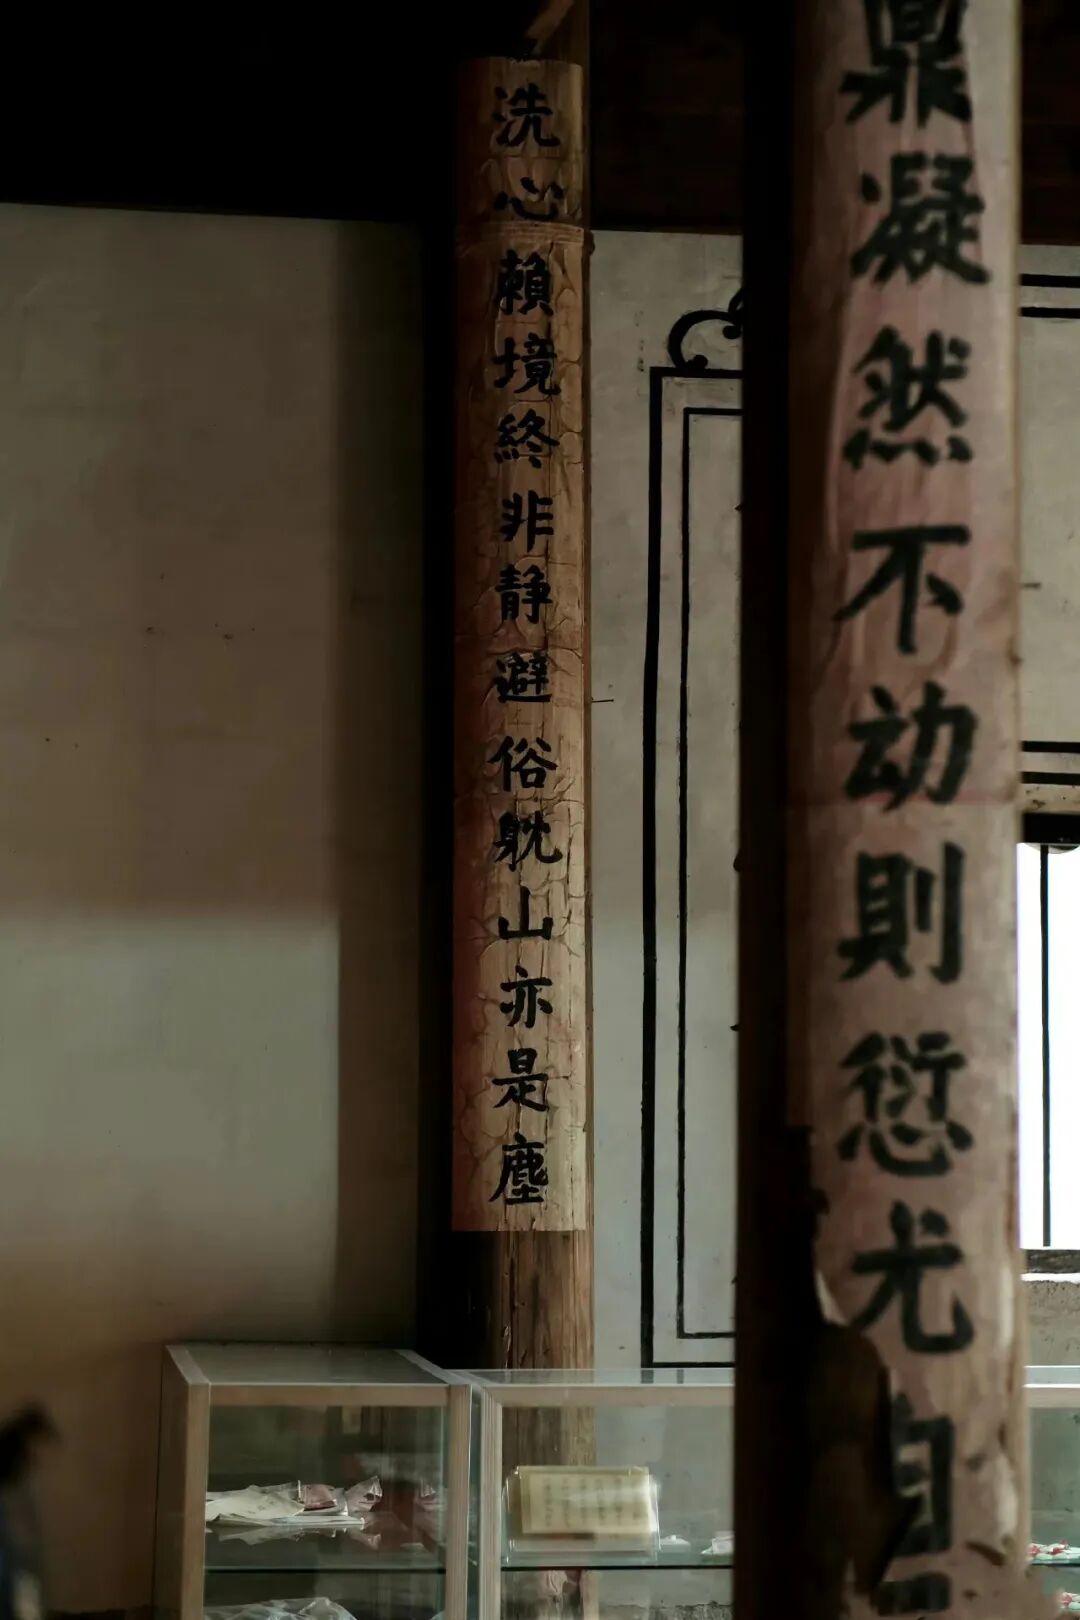 鼎凝然不动則愆尤自
洗心賴境終非静避俗躭山亦是塵